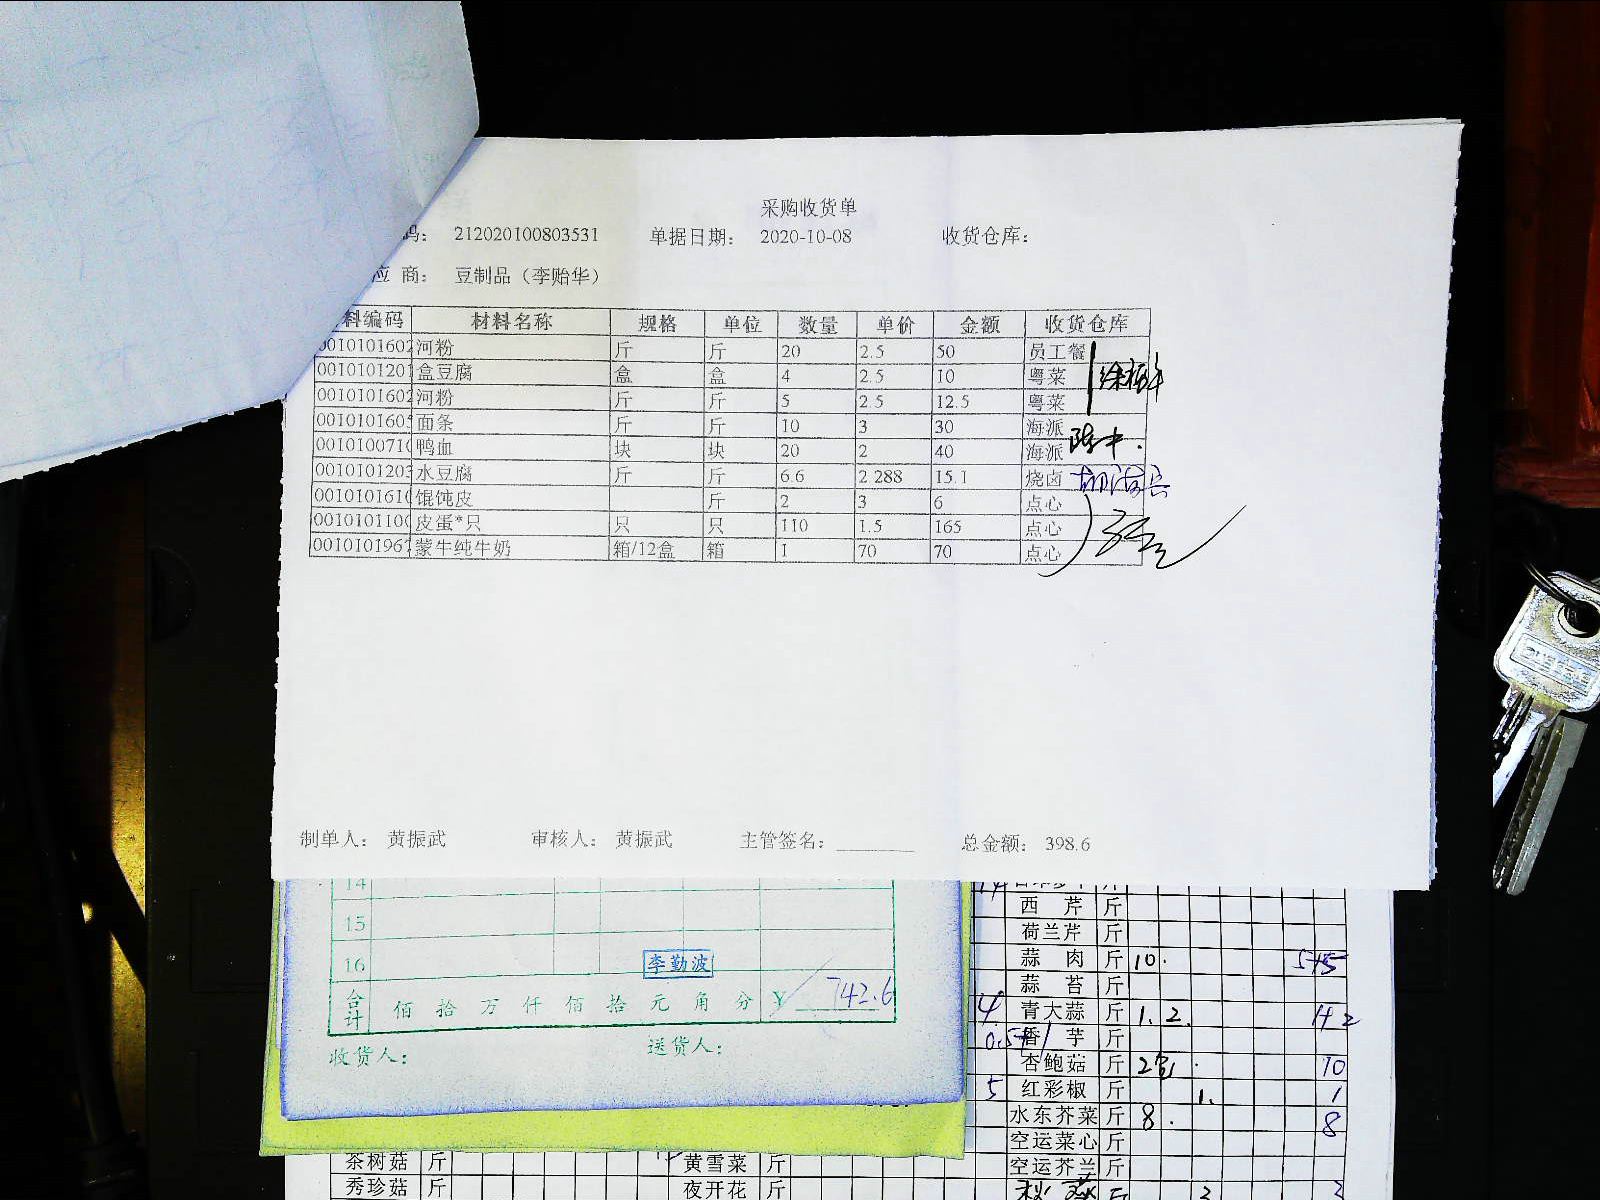 采购收货单
码： 212020100803531 单据日期： 2020-10-08 收货仓库：
应 商： 豆制品（李贻华）
料编码 材料名称 规格 单位 数量 单价 金额 收货仓库
0010101602 河粉 斤 斤 20 2.5 50 员工餐
0010101201 盒豆腐 盒 盒 4 2.5 10 粤菜
0010101602 河粉 斤 斤 5 2.5 12.5 粤菜
0010101605 面条 斤 斤 10 3 30 海派
001010071 鸭血 块 块 20 2 40 海派
0010101203 水豆腐 斤 斤 6.6 2.288 15.1 烧卤
001010161 馄饨皮 斤 2 3 6 点心
001010110 皮蛋*只 只 只 110 1.5 165 点心
001010196 蒙牛纯牛奶 箱/12盒 箱 1 70 70 点心
制单人： 黄振武 审核人： 黄振武 主管签名： 总金额： 398.6
14
15
16 李勤波
合计 佰 拾 万 仟 佰 拾 元 角 分 ¥ 742.6
收货人： 送货人：
西 芹 斤
荷兰芹 斤
蒜 肉 斤 10. 5+5
蒜 苔 斤
4 青大蒜 斤 1. 2. 1+2
香 芋 斤
杏鲍菇 斤 10
5 红彩椒 斤 1. 1
水东芥菜 斤 8. 8
空运菜心 斤
空运芥兰 斤
茶树菇 斤 黄雪菜 斤
秀珍菇 斤 夜开花 斤